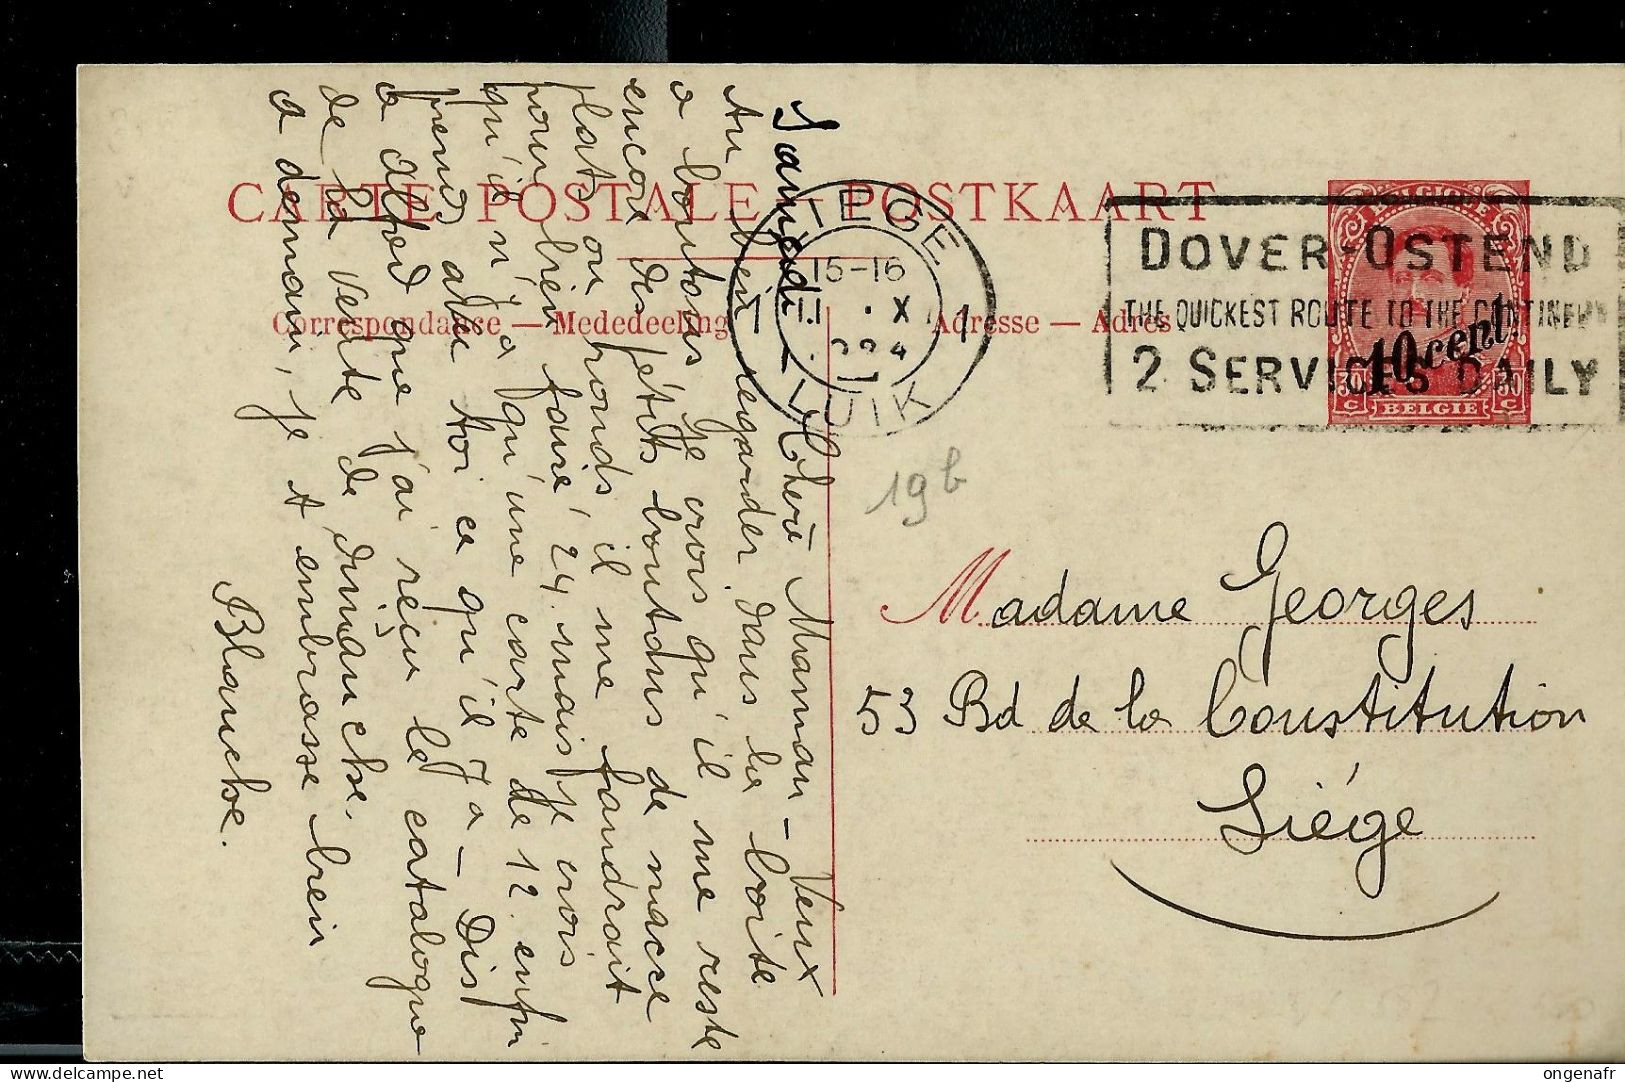 CARTE POSTALE — POSTKAART
Correspondance — Mededeeling
Adresse — Adres
LIEGE
15-16
11 . X
1
1
LUIK
DOVER-OSTEND
THE QUICKEST ROUTE TO THE CONTINENT
2 SERVICES DAILY
BELGIQUE
10 cent.
30 C
30 C
BELGIË
19 b
Madame Georges
53 Bd de la Constitution
Liége
Samedi — Chère Maman — Veux
tu bien regarder dans la boîte
a boutons je crois qu'il me reste
encore des petits boutons de nacre
plats ou ronds il me faudrait
pour bien faire 24. mais je crois
qu'il n'y a qu'une carte de 12. enfin
prends avec toi ce qu'il y a — Dis
a Alfred que j'ai reçu le catalogue
de la vente de dimanche.
a demain, je t embrasse bien
Blanche.
ongenafr